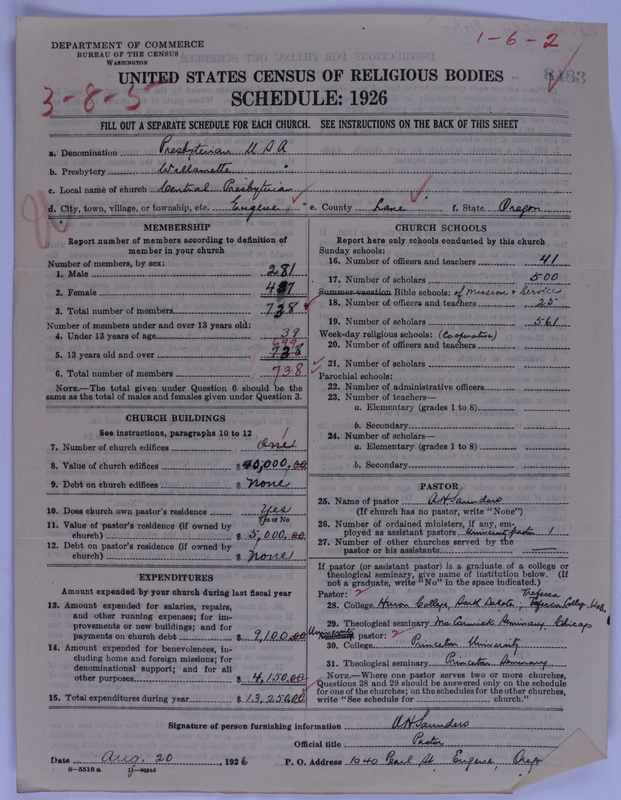 DEPARTMENT OF COMMERCE
BUREAU OF THE CENSUS
WASHINGTON
1-6-2
8483
UNITED STATES CENSUS OF RELIGIOUS BODIES
3-8-5
SCHEDULE: 1926
FILL OUT A SEPARATE SCHEDULE FOR EACH CHURCH. SEE INSTRUCTIONS ON THE BACK OF THIS SHEET
a. Denomination Presbyterian U S A
b. Presbytery Willamette "
c. Local name of church Central Presbyterian
d. City, town, village, or township, etc. Eugene e. County Lane f. State Oregon
MEMBERSHIP
Report number of members according to definition of member in your church
Number of members, by sex:
1. Male 281
2. Female 457
3. Total number of members 738
Number of members under and over 13 years old:
4. Under 13 years of age 39
5. 13 years old and over 699 738
6. Total number of members 738
NOTE.—The total given under Question 6 should be the same as the total of males and females given under Question 3.
CHURCH BUILDINGS
See instructions, paragraphs 10 to 12
7. Number of church edifices One 1
8. Value of church edifices $ 90,000.00
9. Debt on church edifices $ None
10. Does church own pastor's residence Yes
Yes or No
11. Value of pastor's residence (if owned by church) $ 5,000.00
12. Debt on pastor's residence (if owned by church) $ None
EXPENDITURES
Amount expended by your church during last fiscal year
13. Amount expended for salaries, repairs, and other running expenses; for improvements or new buildings; and for payments on church debt $ 9,100.00
14. Amount expended for benevolences, including home and foreign missions; for denominational support; and for all other purposes $ 4,150.00
15. Total expenditures during year $ 13,250.00
CHURCH SCHOOLS
Report here only schools conducted by this church
Sunday schools:
16. Number of officers and teachers 41
17. Number of scholars 500
Summer vacation Bible schools: of Missions & Service
18. Number of officers and teachers 25
19. Number of scholars 561
Week-day religious schools: (Cooperative)
20. Number of officers and teachers
21. Number of scholars
Parochial schools:
22. Number of administrative officers
23. Number of teachers—
a. Elementary (grades 1 to 8)
b. Secondary
24. Number of scholars—
a. Elementary (grades 1 to 8)
b. Secondary
PASTOR
25. Name of pastor A H Saunders
(If church has no pastor, write "None")
26. Number of ordained ministers, if any, employed as assistant pastors University pastor 1
27. Number of other churches served by the pastor or his assistants —
If pastor (or assistant pastor) is a graduate of a college or theological seminary, give name of institution below. (If not a graduate, write "No" in the space indicated.)
Pastor: 2
28. College Huron College, South Dakota;
29. Theological seminary McCormick Seminary, Chicago
University pastor: 2
30. College Princeton University
31. Theological seminary Princeton Seminary
NOTE.—Where one pastor serves two or more churches, Questions 28 and 29 should be answered only on the schedule for one of the churches; on the schedules for the other churches, write "See schedule for church."
Signature of person furnishing information A H Saunders
Official title Pastor
Date Aug. 20, 1926 P. O. Address 1040 Pearl St, Eugene, Oreg
8-5518 a